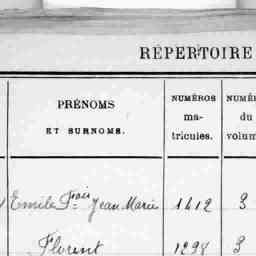 RÉPERTOIRE
PRÉNOMS
ET SURNOMS.
NUMÉROS
ma-
tricules.
NUMÉ
du
volum
Emile Fçois Jean Marie 1412 3
Florent 1298 3